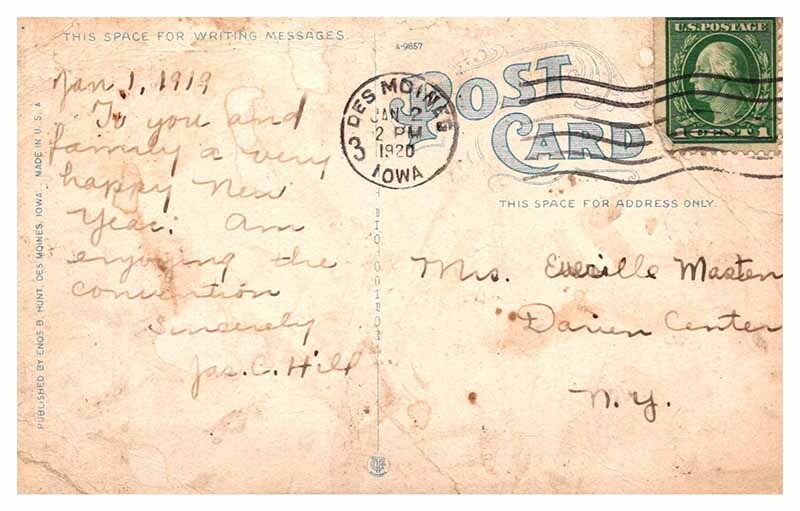 THIS SPACE FOR WRITING MESSAGES.
A-9857
POST
CARD
U.S. POSTAGE
1 CENT 1
DES MOINES
JAN 2
2 PM
1920
IOWA
3
THIS SPACE FOR ADDRESS ONLY.
Jan 1, 1919
To you and
family a very
happy New
Year. Am
enjoying the
convention
Sincerely
Jas. C. Hill
Mrs. Masten
Darien Center
N.Y.
PUBLISHED BY ENOS B. HUNT, DES MOINES, IOWA. MADE IN U.S.A.